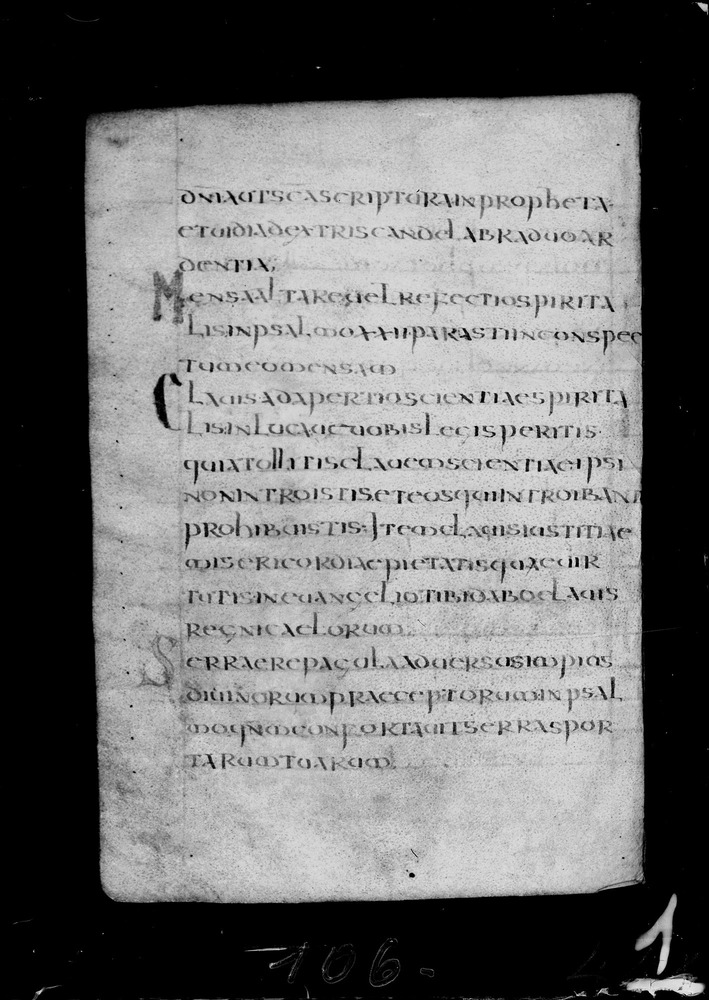 dn̄i aut sc̄a scriptura in propheta
et uidi ad extris candelabra duo ar
dentia,
Mensa altare uel refectio spirita
lis in psalmo xxii parasti in conspec
tu meo mensam
Clauis adapertio scientiae spirita
lis in luca uae uobis legis peritis
quia tollitis clauem scientiae ipsi
non introistis et eos qui introibant
prohibuistis. Item clauis iustitiae
misericordiae pietatisquae uir
tutis in euangelio tibi dabo clauis
regni caelorum
Serrae repagula aduersus impios
diuinorum praeceptorum in psal
mo confortauit serras por
tarum tuarum.
106.
1